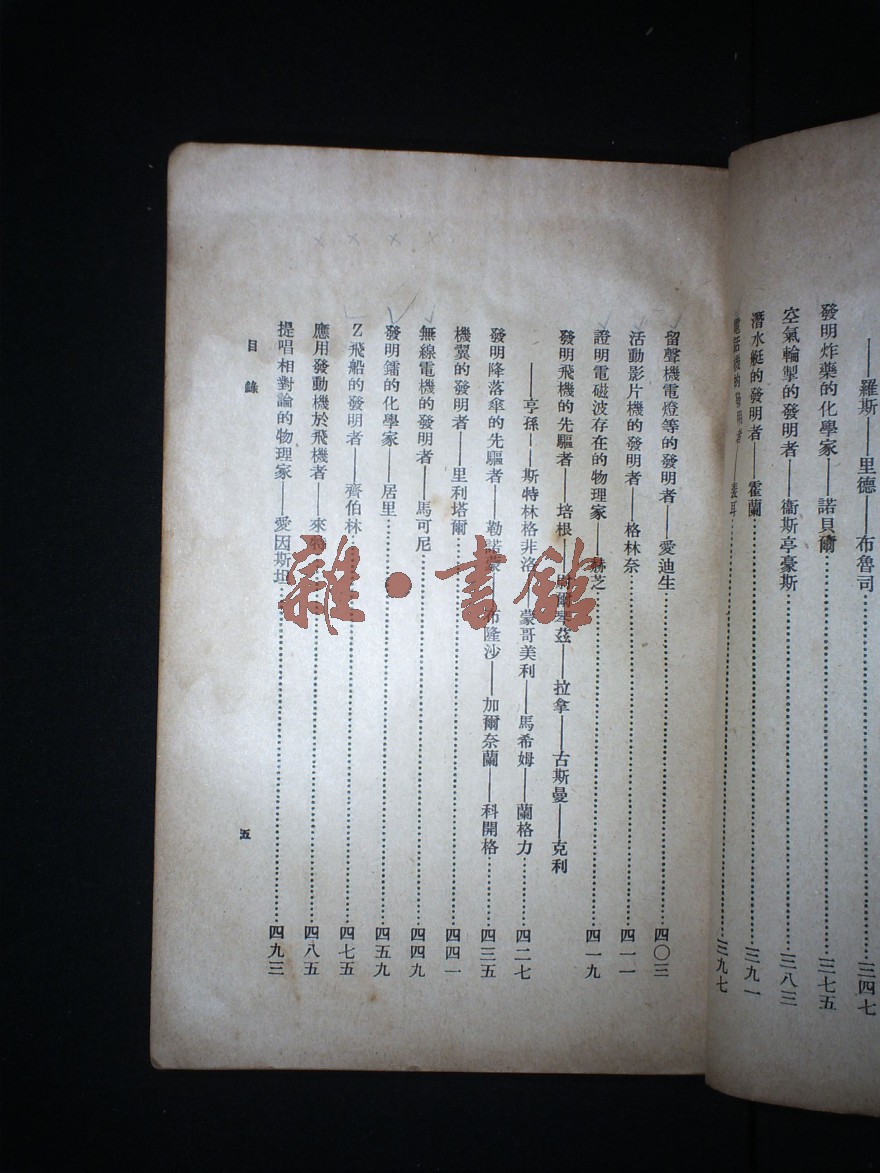 ——羅斯——里德——布魯司……三四七
發明炸藥的化學家——諾貝爾……三七五
空氣輪掣的發明者——衞斯亭豪斯……三八三
潛水艇的發明者——霍蘭……三九一
電話機的發明者——裴耳……三九七
留聲機電燈等的發明者——愛迪生……四〇三
活動影片機的發明者——格林奈……四一一
證明電磁波存在的物理家——赫芝……四一九
發明飛機的先驅者——培根——斯爾琴茲——拉拿——古斯曼——克利
——亨孫——斯特林格非洛——蒙哥美利——馬希姆——蘭格力……四二七
發明降落傘的先驅者——勒諾蒙——布隆沙——加爾奈蘭——科開格……四三五
機翼的發明者——里利塔爾……四四一
無線電機的發明者——馬可尼……四四九
發明鐳的化學家——居里……四五九
Z飛船的發明者——齊伯林……四七五
應用發動機於飛機者——來特……四八五
提唱相對論的物理家——愛因斯坦……四九三
目錄
五
雜·書館